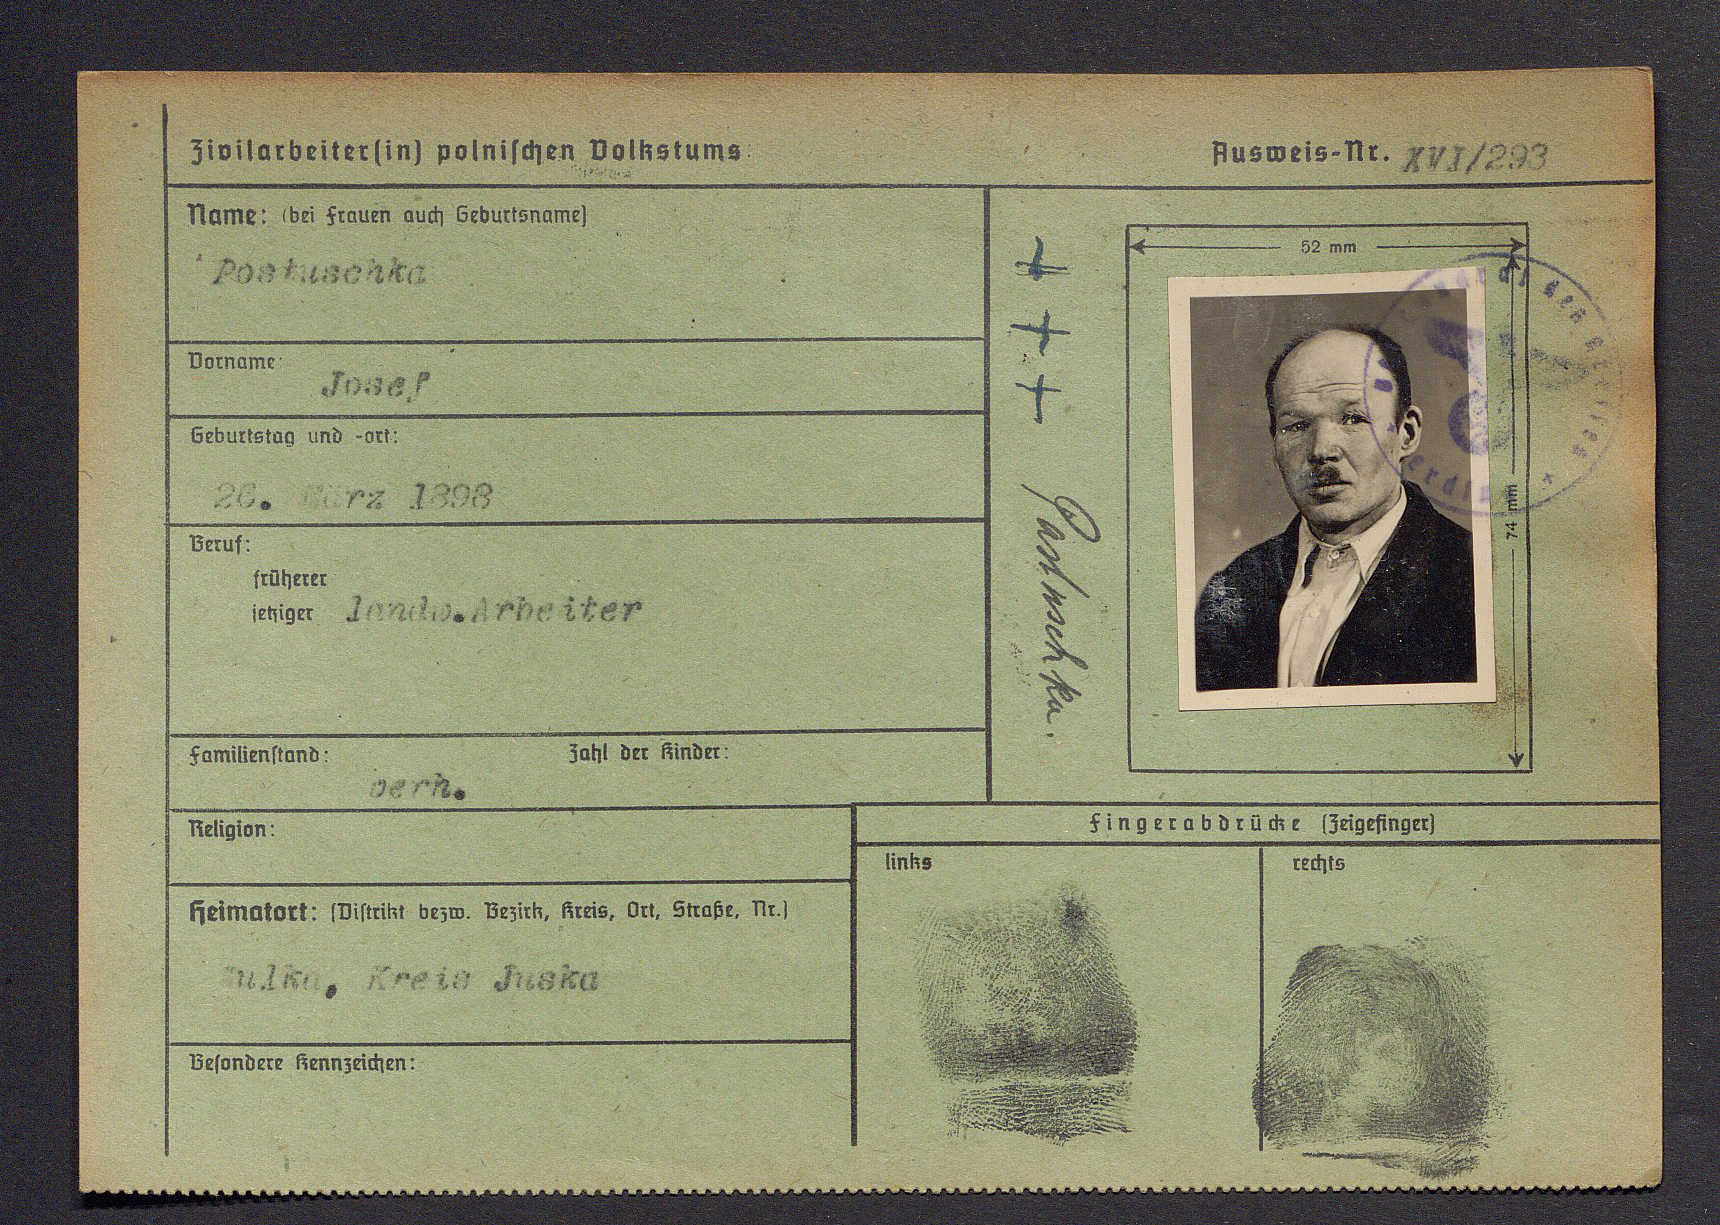 Zivilarbeiter(in) polnischen Volkstums
Ausweis-Nr. XVI/293
Name: (bei Frauen auch Geburtsname)
Postuschka
Vorname
Josef
Geburtstag und -ort:
26. März 1898
Beruf:
früherer
jetziger landw. Arbeiter
Familienstand:
Zahl der Kinder:
verh.
Religion:
Heimatort: (Distrikt bezw. Bezirk, Kreis, Ort, Straße, Nr.)
Kreis Juska
Besondere Kennzeichen:
+
+
+
Pastuschka.
52 mm
74 mm
Fingerabdrücke (Zeigefinger)
links
rechts